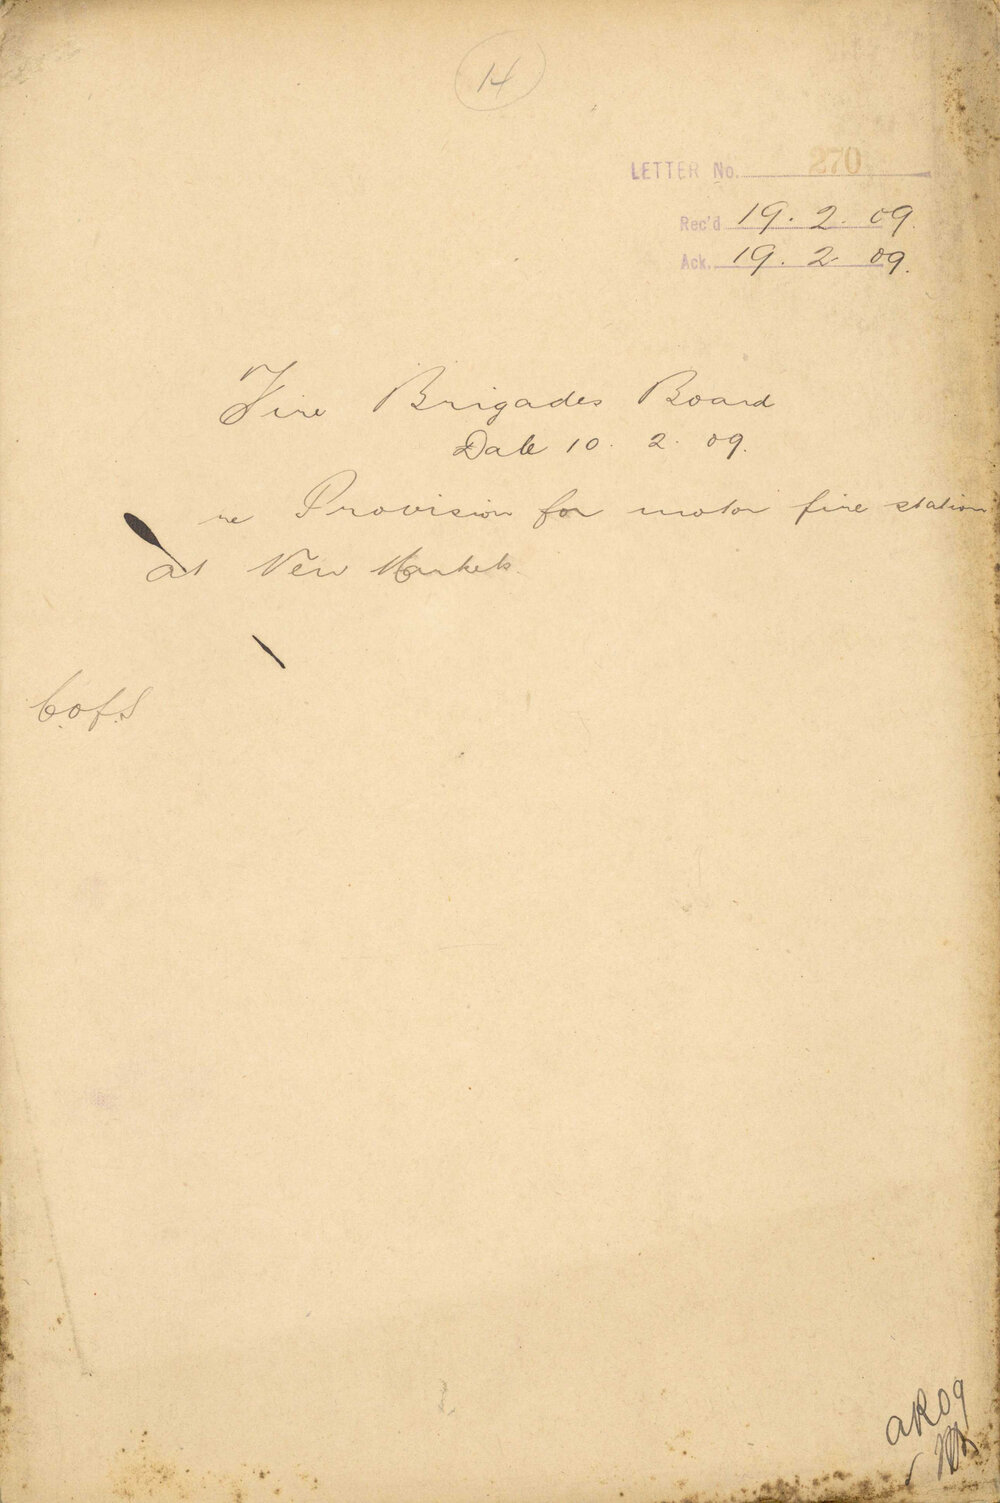 14
LETTER No. 270
Rec'd 19. 2. 09.
Ack. 19. 2. 09.
Fire Brigades Board
Date 10. 2. 09.
re Provision for motor fire station
at New Markets.
C.of.S
AR09